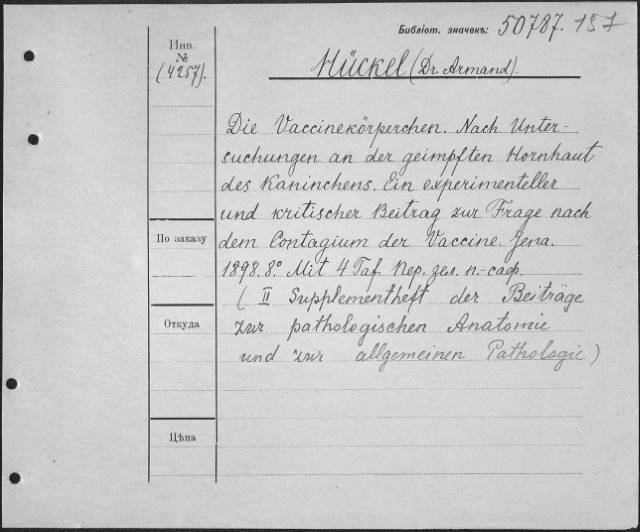 Библіот. значекъ: 50787. 187
Инв.
№
(4257).
Mückel (Dr. Armand).
Die Vaccinekörperchen. Nach Unter-
suchungen an der geimpften Hornhaut
des Kaninchens. Ein experimenteller
und kritischer Beitrag zur Frage nach
dem Contagium der Vaccine. Jena.
1898. 8º Mit 4 Taf. Пер. зел. п.-саф.
( II Supplementheft der Beiträge
zur pathologischen Anatomie
und zur allgemeinen Pathologie)
По заказу
Откуда
Цѣна